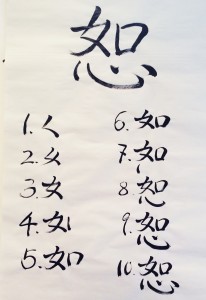 恕
1. く
2. 女
3. 女
4. 如
5. 如
6. 如
7. 如
8. 恕
9. 恕
10. 恕